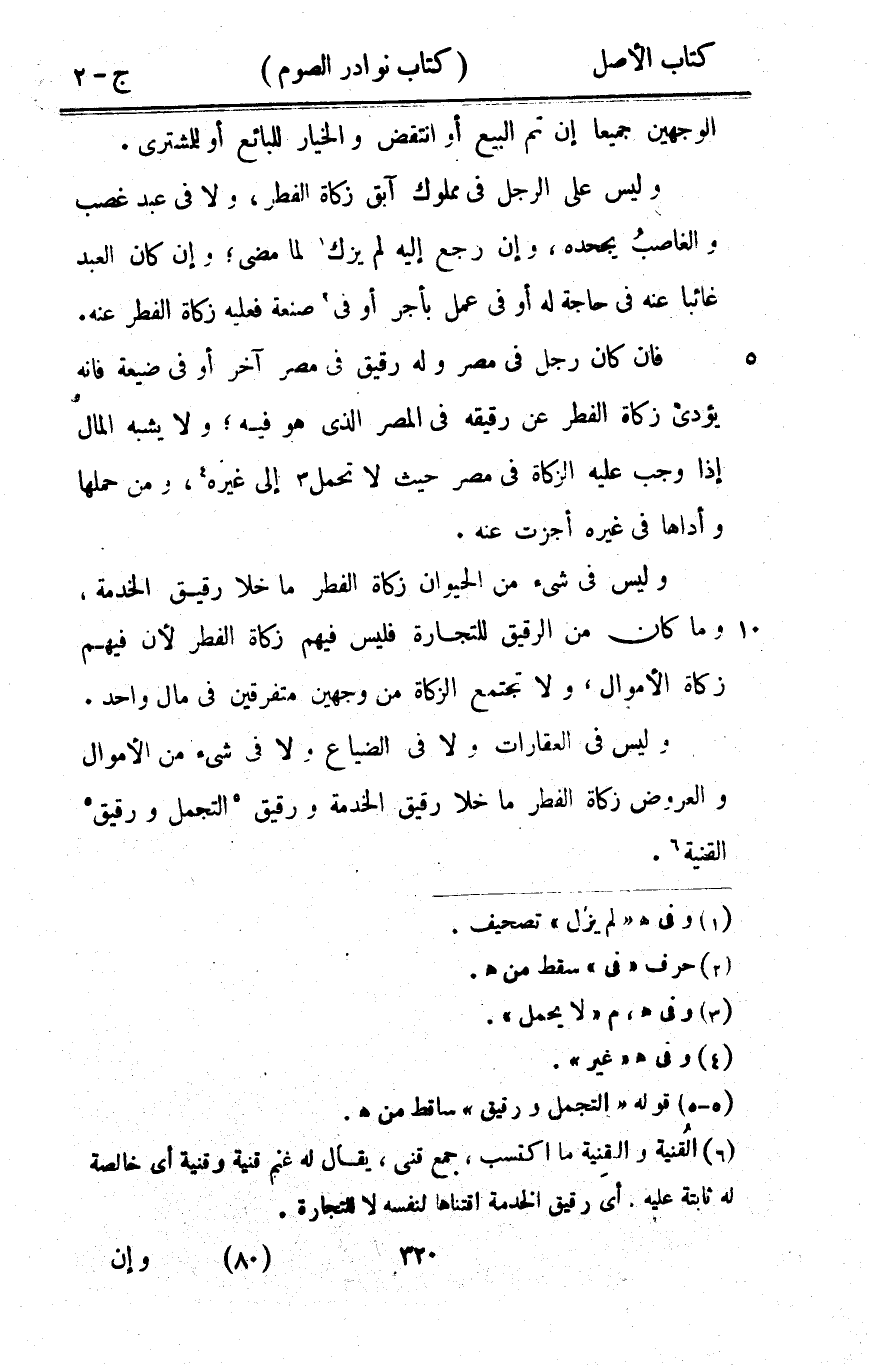 كتاب الأصل (كتاب نوادر الصوم) ج - ٢
الوجهين جميعا إن تم البيع أو انتقض و الخيار للبائع أو للمشترى .
و ليس على الرجل فى مملوك آبق زكاة الفطر ، و لا فى عبد غصب
و الغاصبُ يجحده ، و إن رجع إليه لم يزك١ لما مضى ؛ و إن كان العبد
غائبا عنه فى حاجة له أو فى عمل بأجر أو فى٢ صنعة فعليه زكاة الفطر عنه.
٥ فان كان رجل فى مصر و له رقيق فى مصر آخر أو فى ضيعة فانه
يؤدى زكاة الفطر عن رقيقه فى المصر الذى هو فيه ؛ و لا يشبه المالُ
إذا وجب عليه الزكاة فى مصر حيث لا تحمل٣ إلى غيره٤ ، و من حملها
و أداها فى غيره أجزت عنه .
و ليس فى شىء من الحيوان زكاة الفطر ما خلا رقيق الخدمة ،
١٠ و ما كان من الرقيق للتجارة فليس فيهم زكاة الفطر لأن فيهم
زكاة الأموال ، و لا تجتمع الزكاة من وجهين متفرقين فى مال واحد .
و ليس فى العقارات و لا فى الضياع و لا فى شىء من الأموال
و العروض زكاة الفطر ما خلا رقيق الخدمة و رقيق ٥التجمل و رقيق٥
القنية٦ .
(١) و فى ه «لم يزل» تصحيف .
(٢) حرف «فى» سقط من ه .
(٣) و فى ه ، م «لا يحمل» .
(٤) و فى ه «غير» .
(٥-٥) قوله «التجمل و رقيق» ساقط من ه .
(٦) القُنية و القِنية ما اكتسب ، جمع قنى ، يقال له غنم قنية وقنية أى خالصة
له ثابتة عليه . أى رقيق الخدمة اقتناها لنفسه لا للتجارة .
٣٢٠ (٨٠) و إن